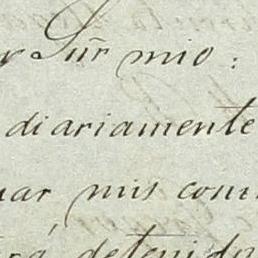 r Sũr mio:
diariamente
uar mis com
rá detenido